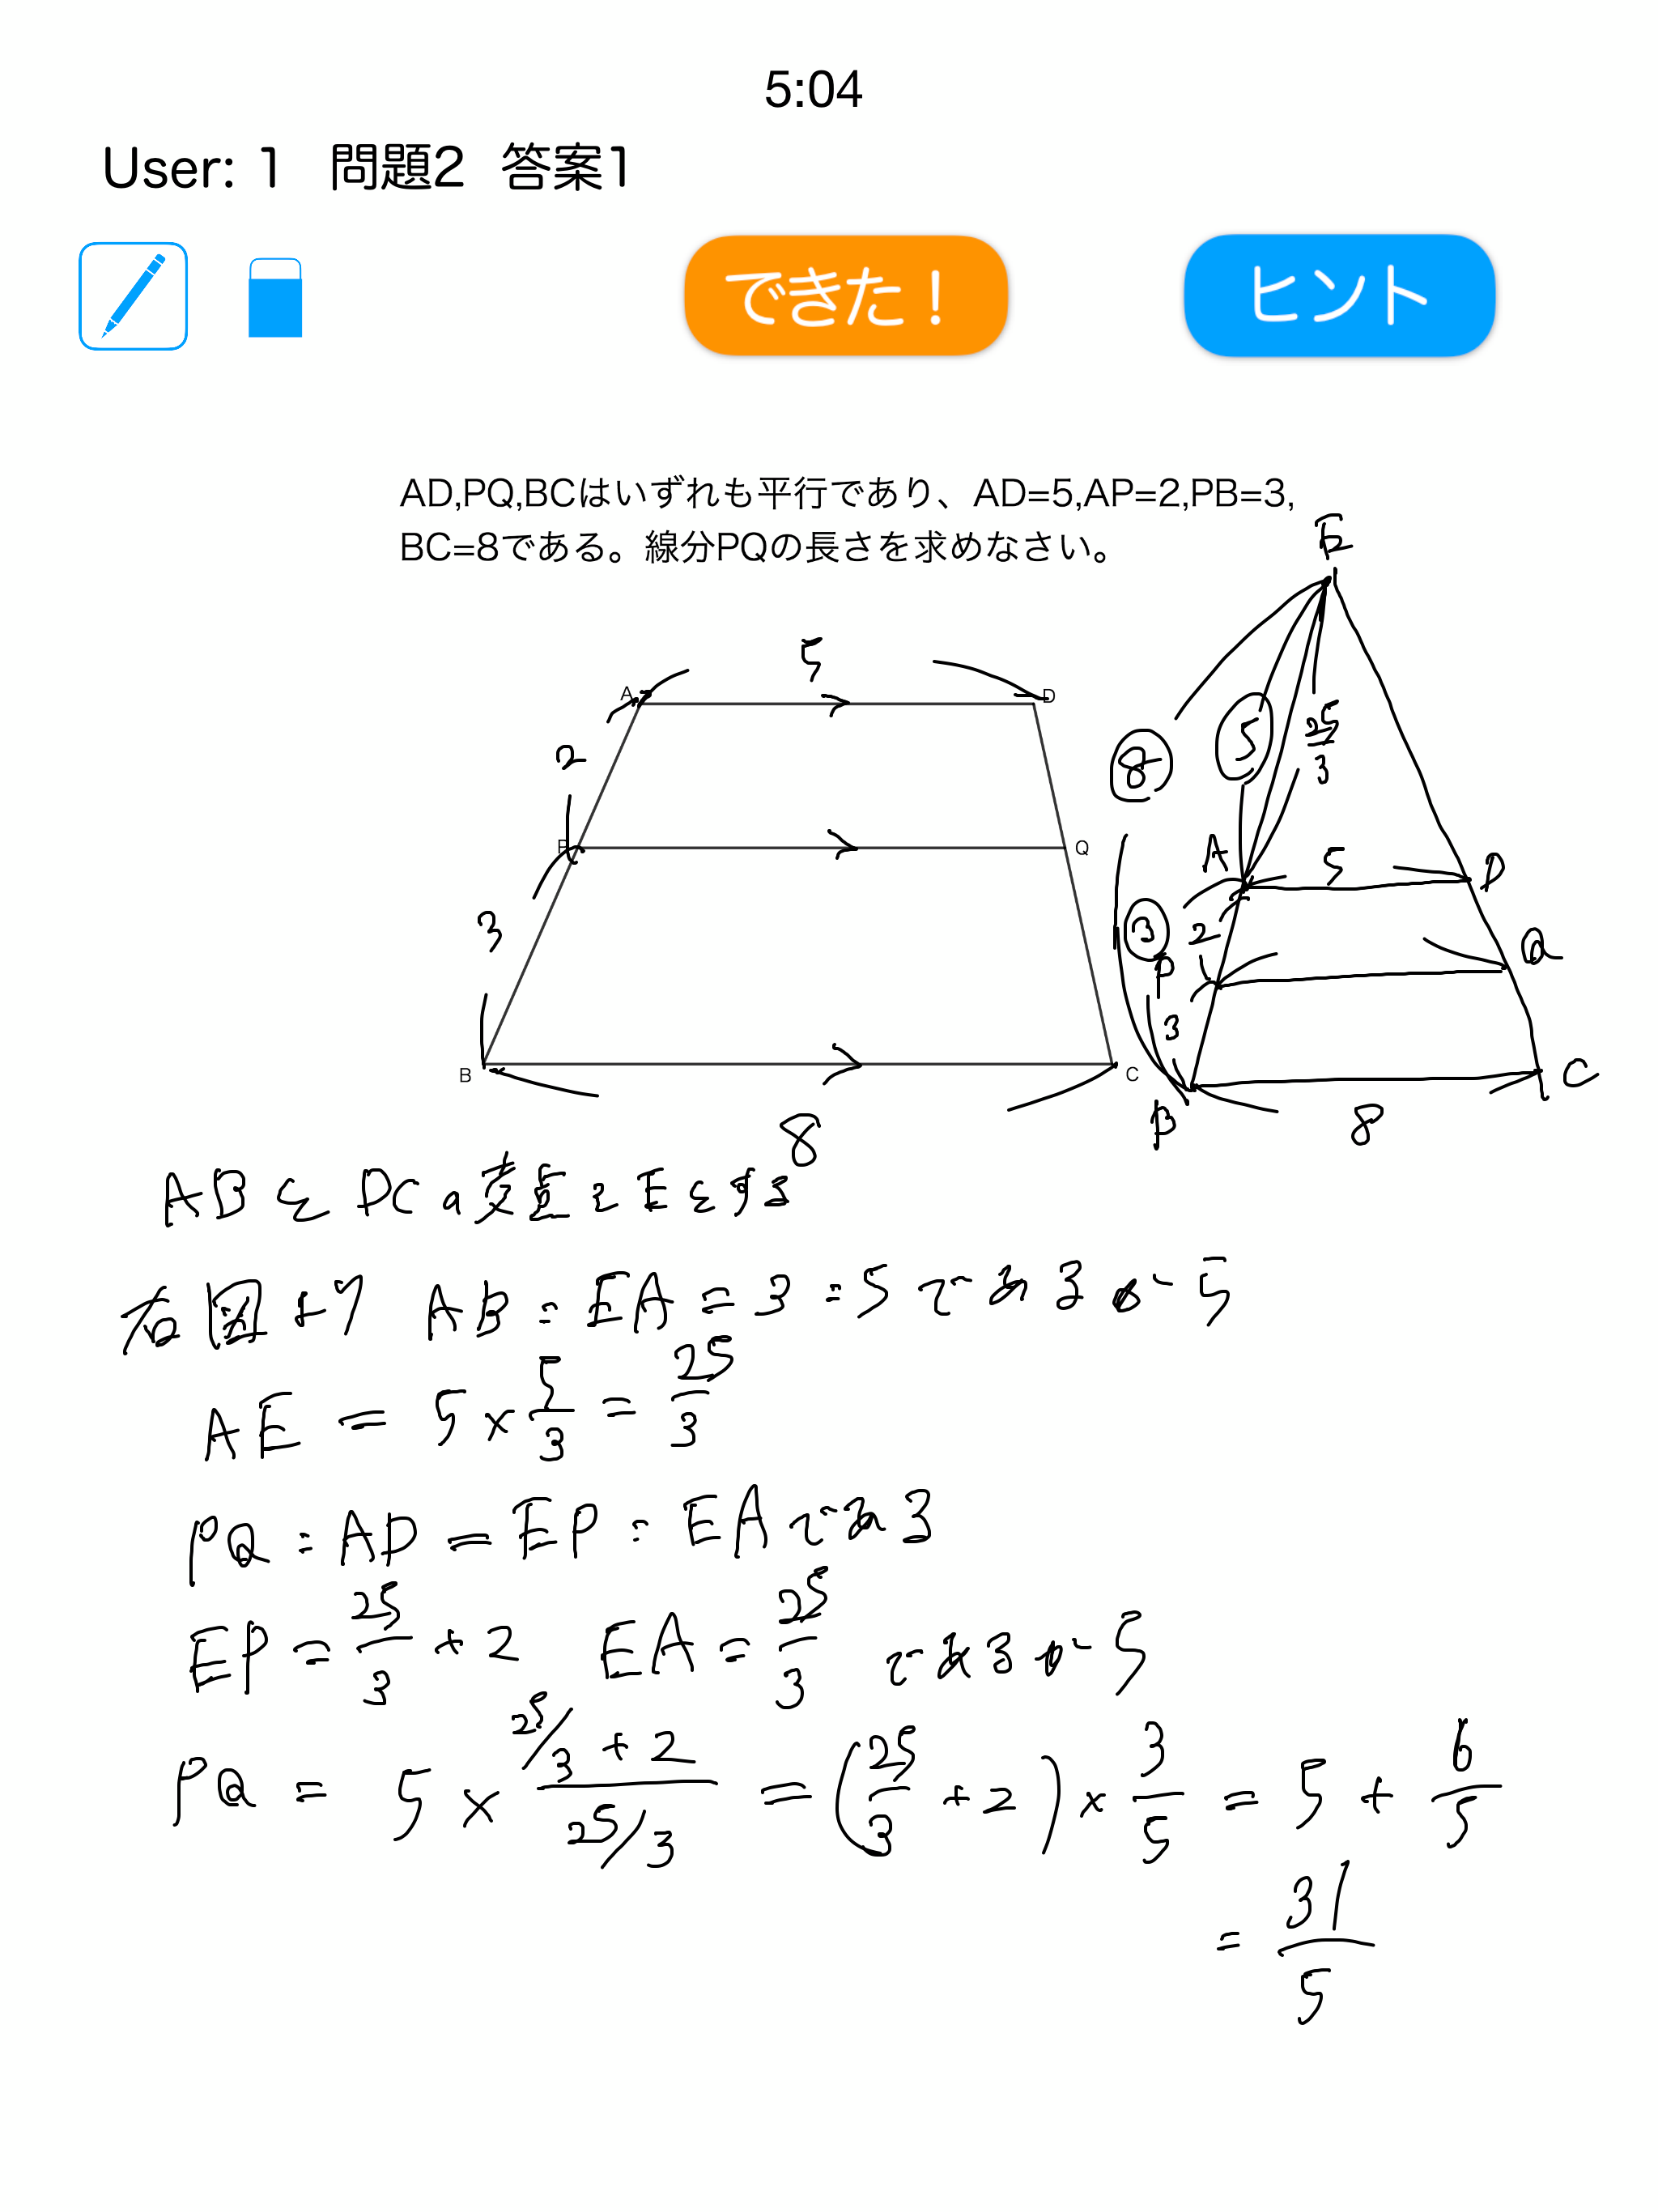 5:04
User: 1 問題2 答案1
できた！
ヒント
AD,PQ,BCはいずれも平行であり、AD=5,AP=2,PB=3,
BC=8である。線分PQの長さを求めなさい。
E
5
A
D
2
P
Q
3
B
C
8
8
5
25/3
A
5
D
3
2
Q
P
3
B
8
C
ABとDCの交点をEとする
右図より AB:EA=3:5であるから
AE = 5×5/3 = 25/3
PQ:AD=EP:EAである
EP = 25/3 + 2 EA = 25/3 であるから
PQ = 5 × (25/3 + 2)/(25/3) = (25/3 + 2) × 3/5 = 5 + 6/5
= 31/5